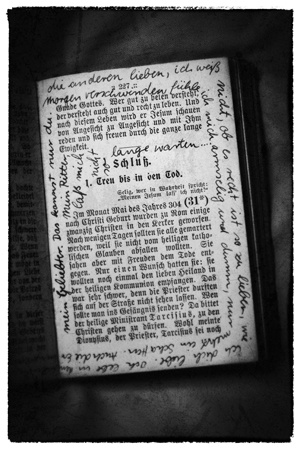 die anderen lieben, ich waß
morgen verschwinden
— 227. —
Gnade Gottes. Wer gut zu beten versteht,
der versteht auch gut und recht zu leben. Und
nach diesem Leben wird er Jesum schauen
von Angesicht zu Angesicht und mit Ihm
reden und sich freuen durch die ganze lange
Ewigkeit.
nicht so lange warten...
Schluß.
1. Treu bis in den Tod.
Selig, wer in Wahrheit spricht:
„Meinen Jesum laß ich nicht!"
Im Monat Mai des Jahres 304 (31°)
nach Christi Geburt wurden zu Rom einige
zwanzig Christen in den Kerker geworfen.
Nach wenigen Tagen sollten sie alle gemartert
werden, weil sie nicht dem heiligen katho-
lischen Glauben absagen wollten. Sie
sahen aber mit Freuden dem Tode ent-
gegen. Nur einen Wunsch hatten sie: sie
wollten noch einmal den lieben Heiland in
der heiligen Kommunion empfangen. Das
war sehr schwer, denn die Priester durften
sich auf der Straße nicht sehen lassen. Wer
sollte nun ins Gefängnis senden? Da bittet
der heilige Ministrant Tarcisius, zu den
Christen gehen zu dürfen. Wohl meinte
Dionysius, der Priester, Tarcisius sei noch
mein Geliebter. Das kannst nur du.
Mein Retter. Laß mich
nicht, ob es recht ist so zu lieben, wie
ich
ich dich liebe.